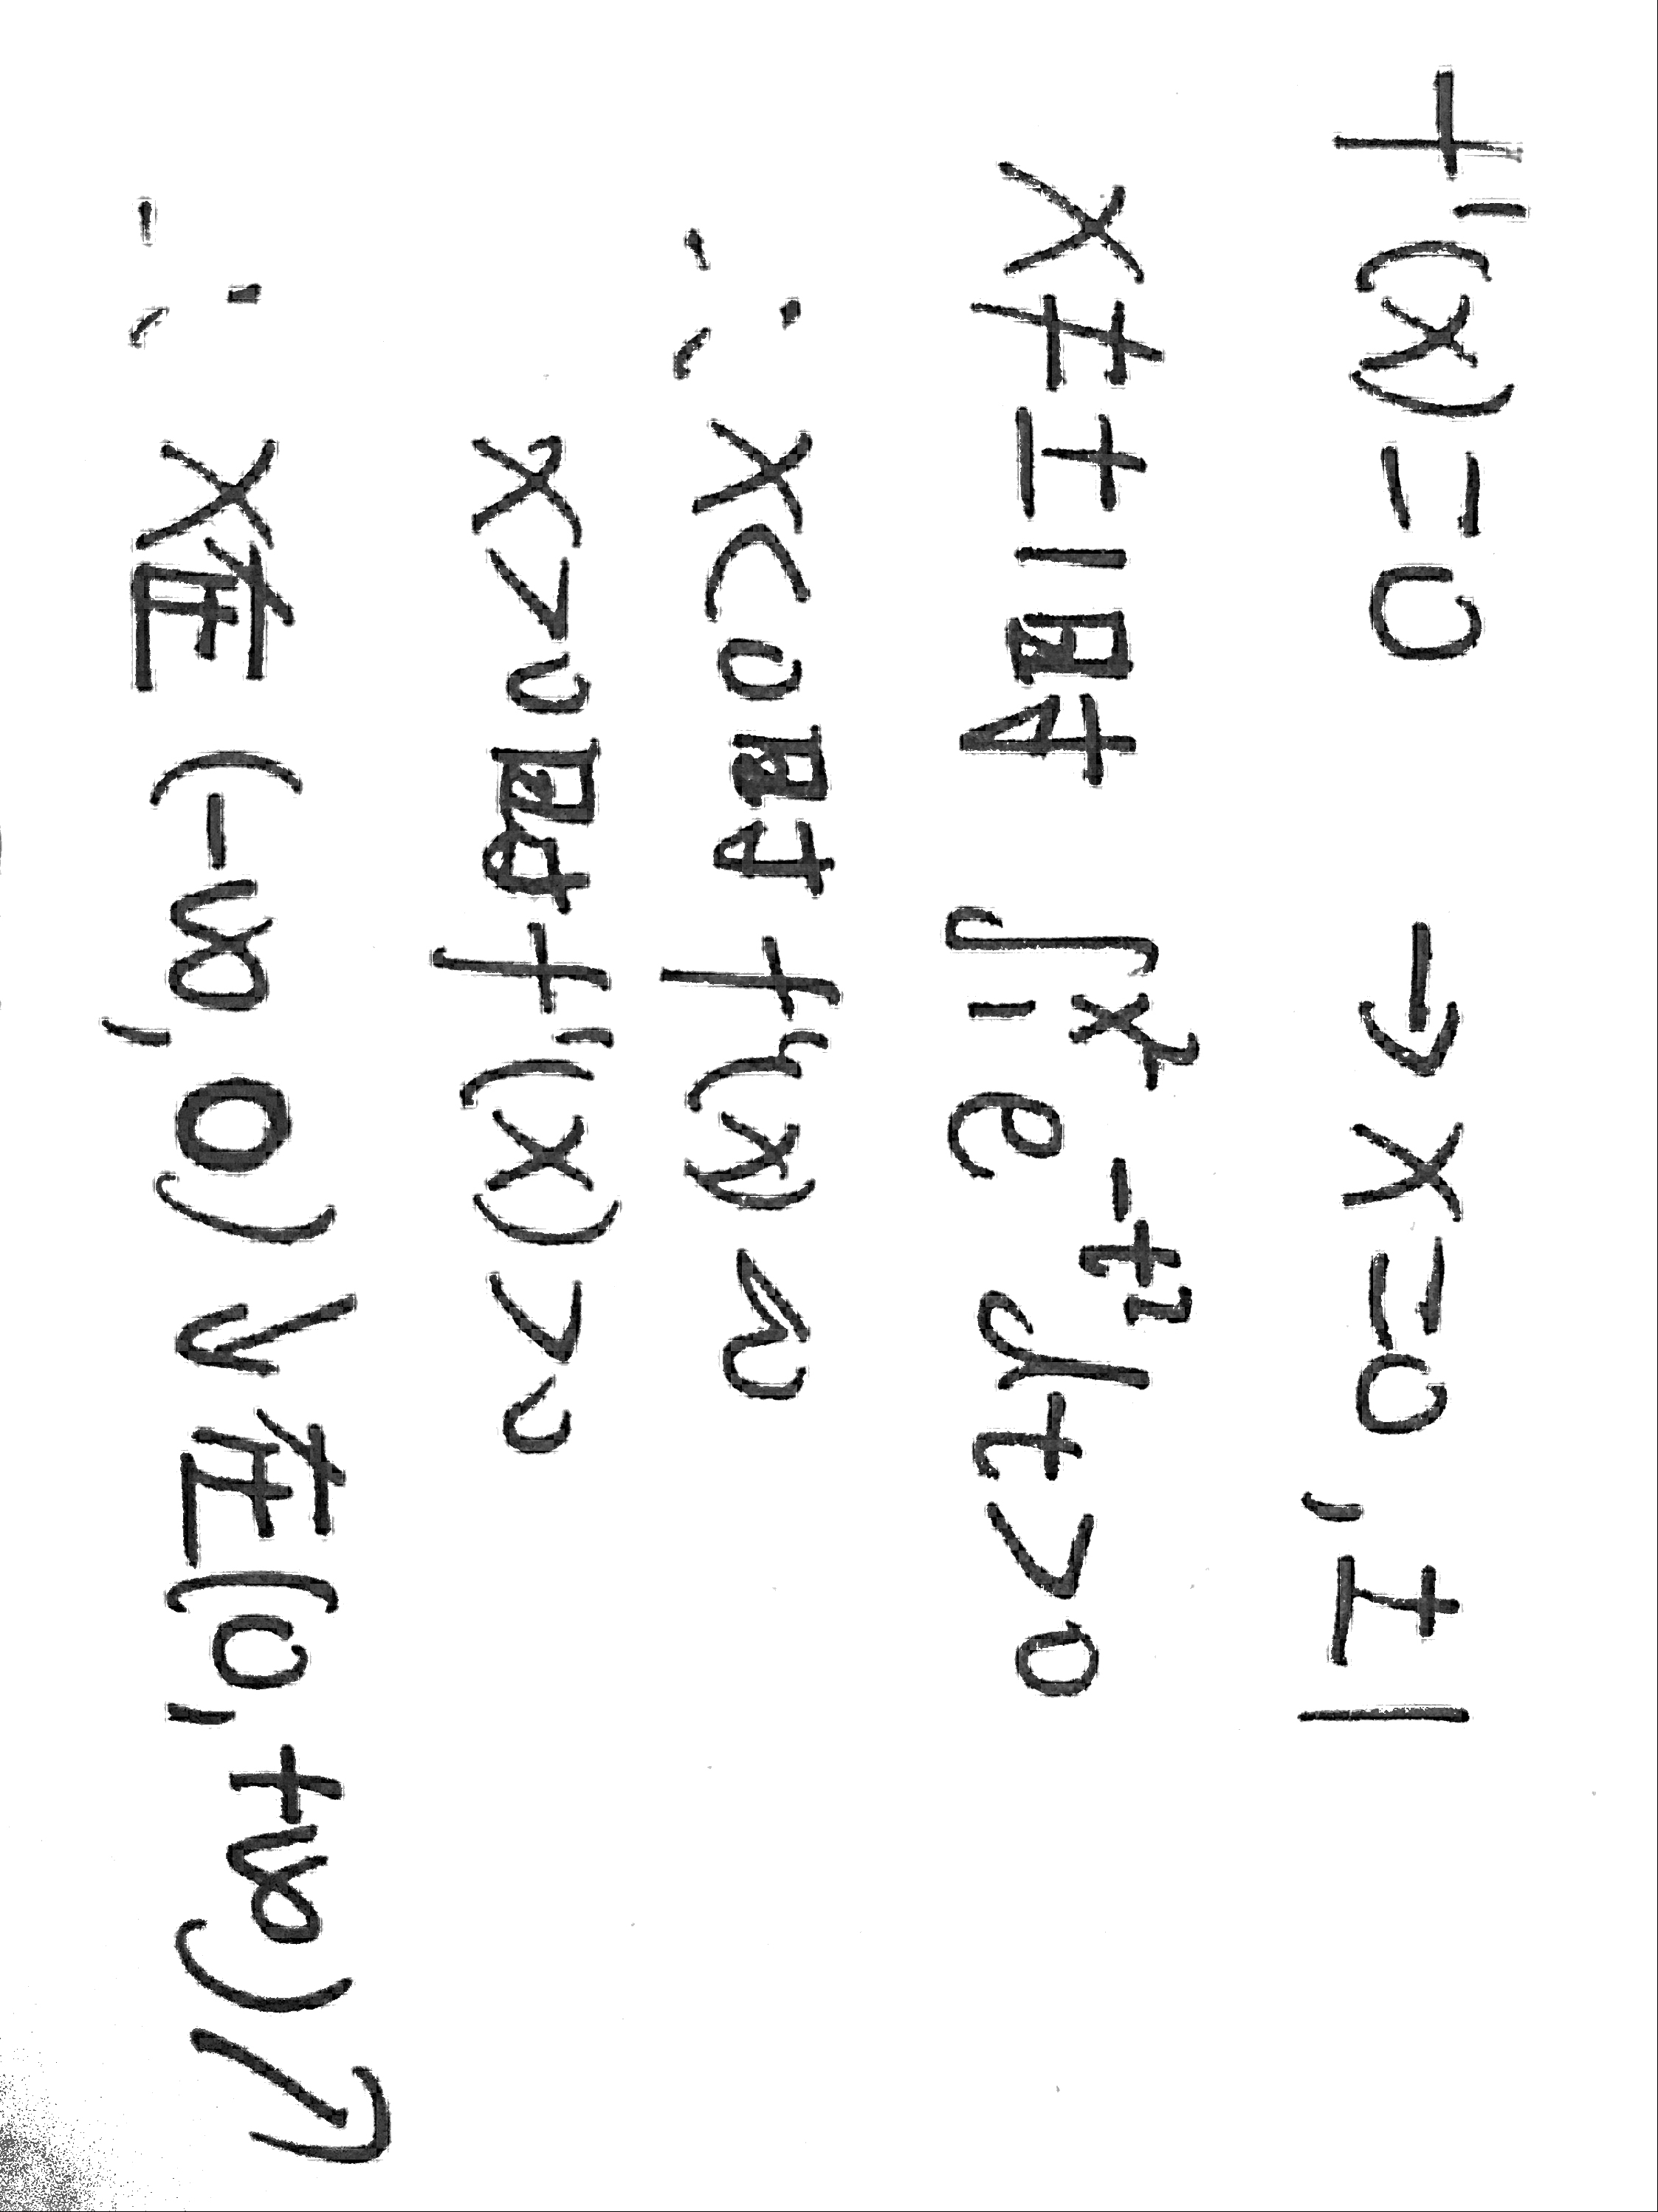 f'(x)=0 → x=0,±1
x≠±1时 ∫₁^{x²} e^{-t²}dt>0
∴ x<0时f'(x)<0
x>0时f'(x)>0
∴ x在(-∞,0)↓在(0,+∞)↗